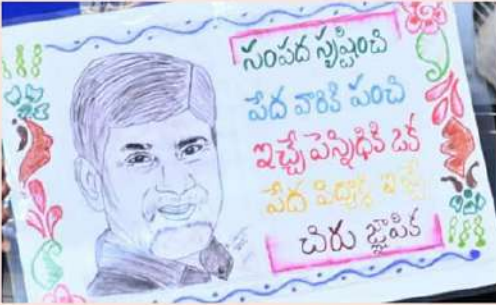 సంపద సృష్టించి
పేద వారికి పంచి
ఇచ్చే పెన్నిధికి ఒక
పేద విద్యార్థి ఇచ్చే
చిరు జ్ఞాపిక